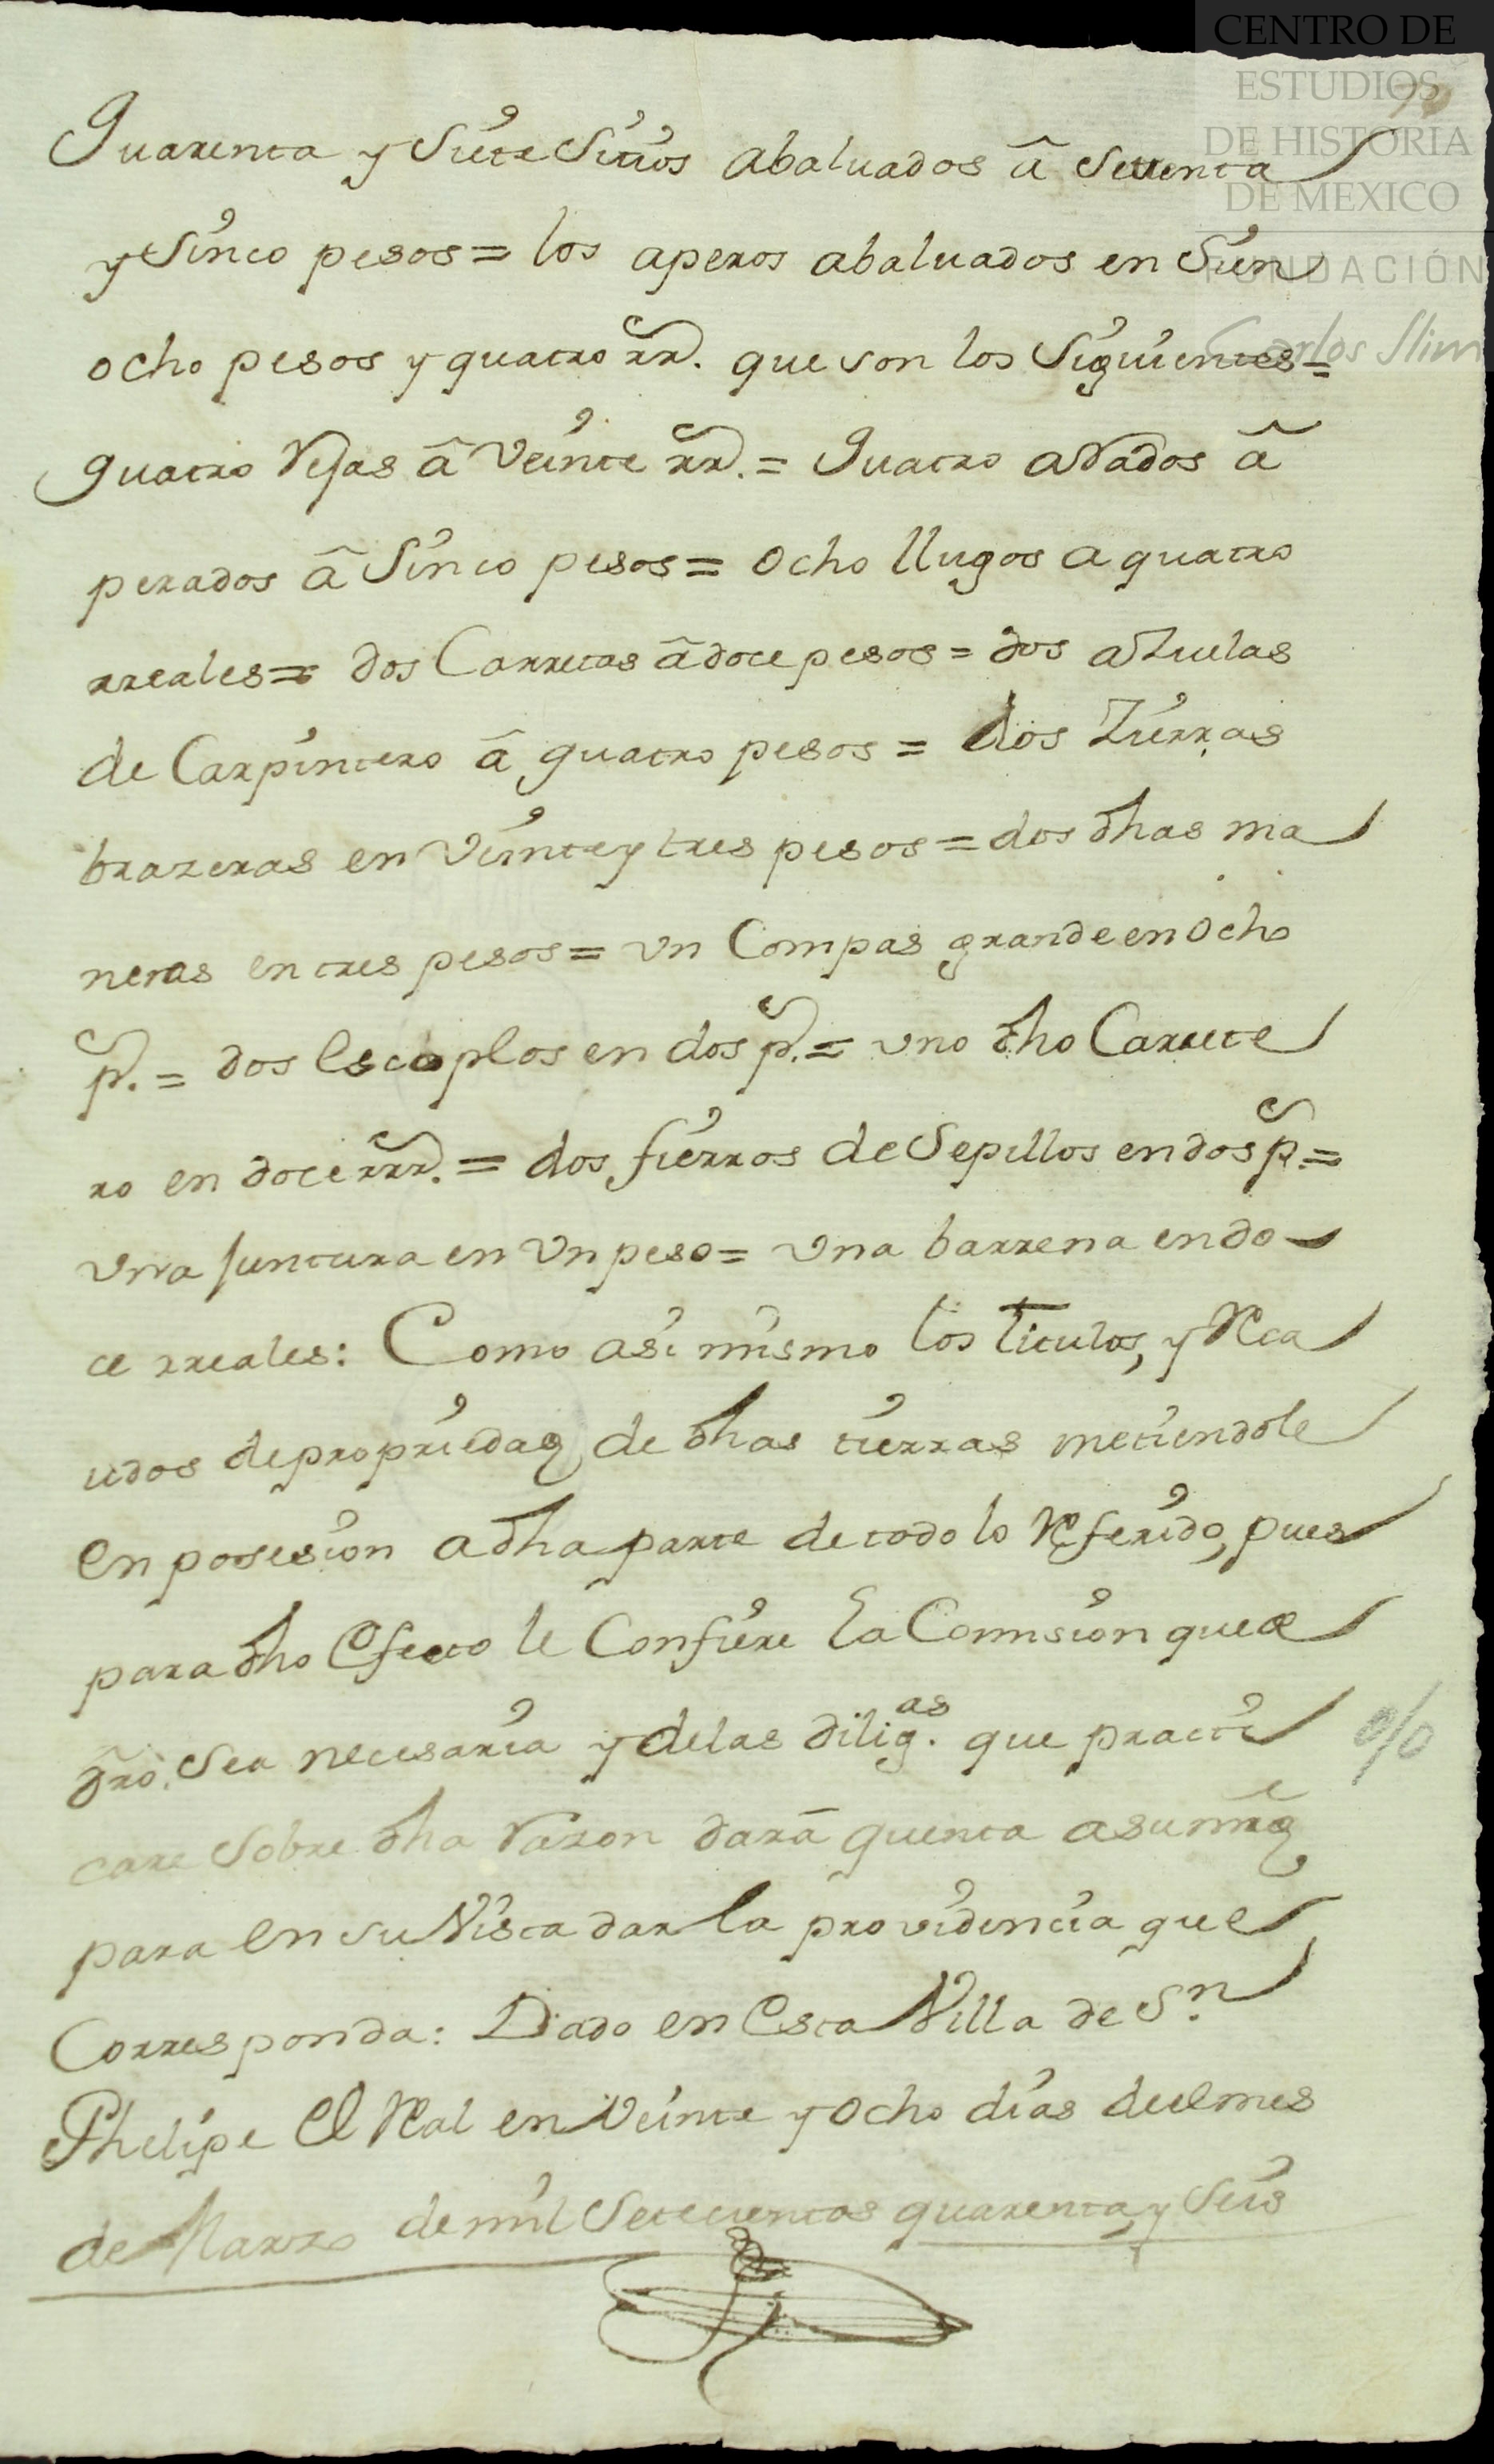 CENTRO DE
ESTUDIOS
DE HISTORIA
DE MEXICO
FUNDACIÓN
Carlos Slim
Quarenta y Siete Sitios abaluados â Setenta
y Sinco pesos = los aperos abaluados en Sien
ocho pesos y quatro rr.ˢ que son los Siguientes =
quatro Rejas â Veinte rr.ˢ = Quatro aRados â
perados â Sinco pesos = ocho llugos a quatro
rreales = dos Carretas â doce pesos = dos aZuelas
de Carpintero â quatro pesos = dos Zierras
brazeras en Veinte y tres pesos = dos dhas ma
neras en tres pesos = vn Compas grande en ocho
p.ˢ = dos Escoplos en dos p.ˢ = vno dho Carrete
ro en doce rrr.ˢ = dos fierros de Sepillos en dos p.ˢ =
vna Juntura en Vn peso = vna barrena en do
ce rreales: Como asi mismo los titulos, y Rea
udos de propriedad de dhas tierras metiendole
en posesion a dha parte de todo lo Referido, pues
para dho Efecto le Confiere la Comision que de
dro. Sea necesaria y de las dilig.ᵃˢ que practi
care Sobre dha Razon darâ quenta a su mrd
para en su Vista dar la providencia que
Corresponda: Dado en Esta Villa de S.ⁿ
Phelipe El Real en Veinte y ocho dias de el mes
de Marzo de mil Setecientos quarenta y Seis